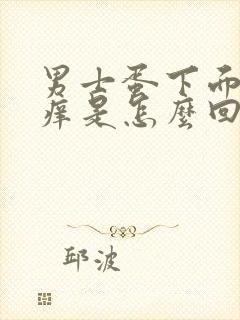 男士蛋下面
痒是怎麼回
邱波